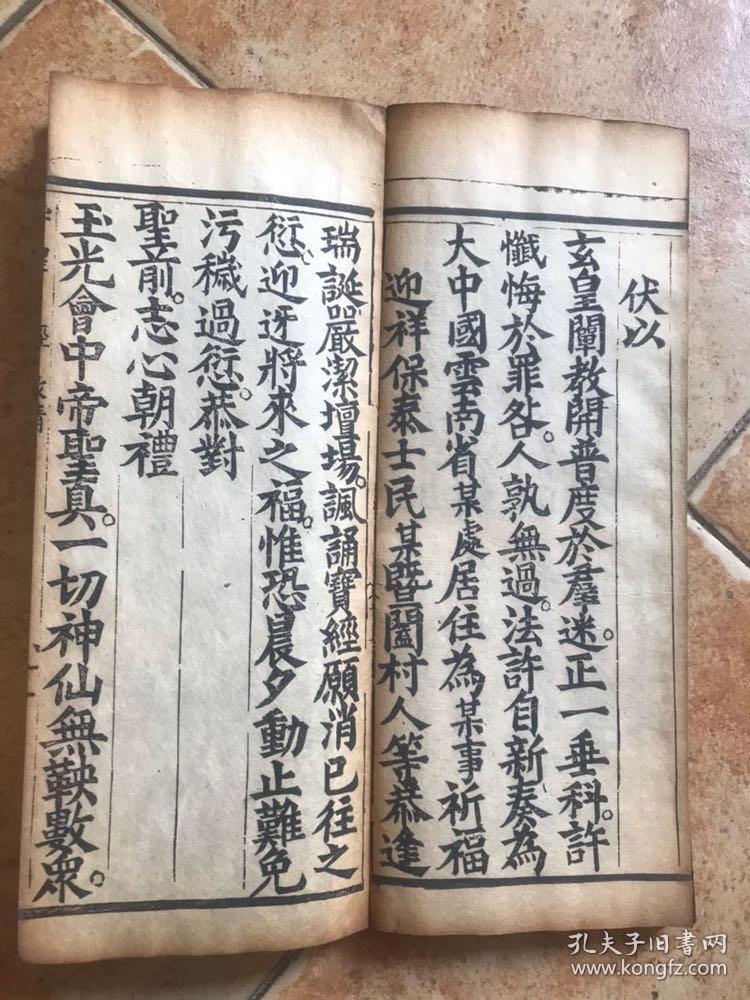 伏以
玄皇闡教開普度於羣迷。正一垂科。許
懺悔於罪咎。人孰無過。法許自新奏為
大中國雲南省某處居住為某事祈福
迎祥保泰士民某暨闔村人等恭逢
瑞誕嚴潔壇場。諷誦寶經願消已往之
愆。迎迓將來之福。惟恐晨夕動止難免
污穢過愆。恭對
聖前。志心朝禮
玉光會中帝聖真。一切神仙無鞅數衆。
孔夫子旧書网
www.kongfz.com